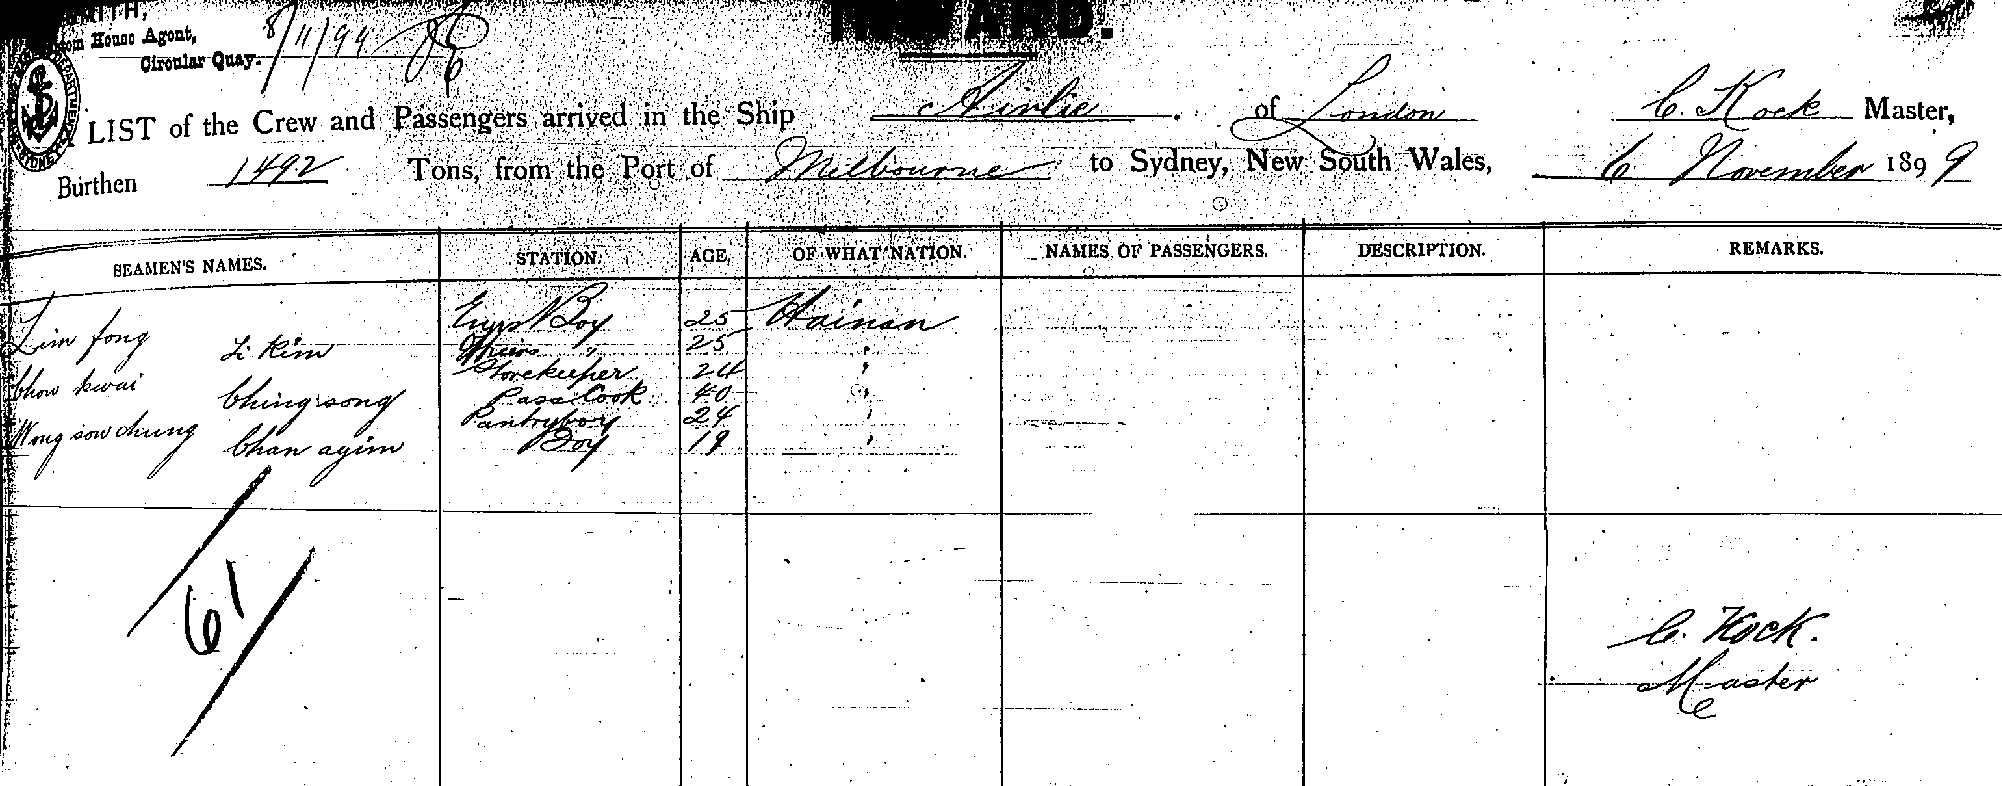 INWARD.
House Agent,
Circular Quay.
8/11/99
LIST of the Crew and Passengers arrived in the Ship Airlie of London C. Kock Master,
Burthen 1492 Tons, from the Port of Melbourne to Sydney, New South Wales, 6 November 1899
SEAMEN'S NAMES. STATION. AGE, OF WHAT NATION. NAMES OF PASSENGERS. DESCRIPTION. REMARKS.
Lim fong Boy 25 Hainan
Li Kim " 25 "
Chow kwai Storekeeper 24 "
Ching song Pass Cook 40 "
Wong sow chung Pantryboy 24 "
Chan ayim Boy 19 "
61
C. Kock.
Master